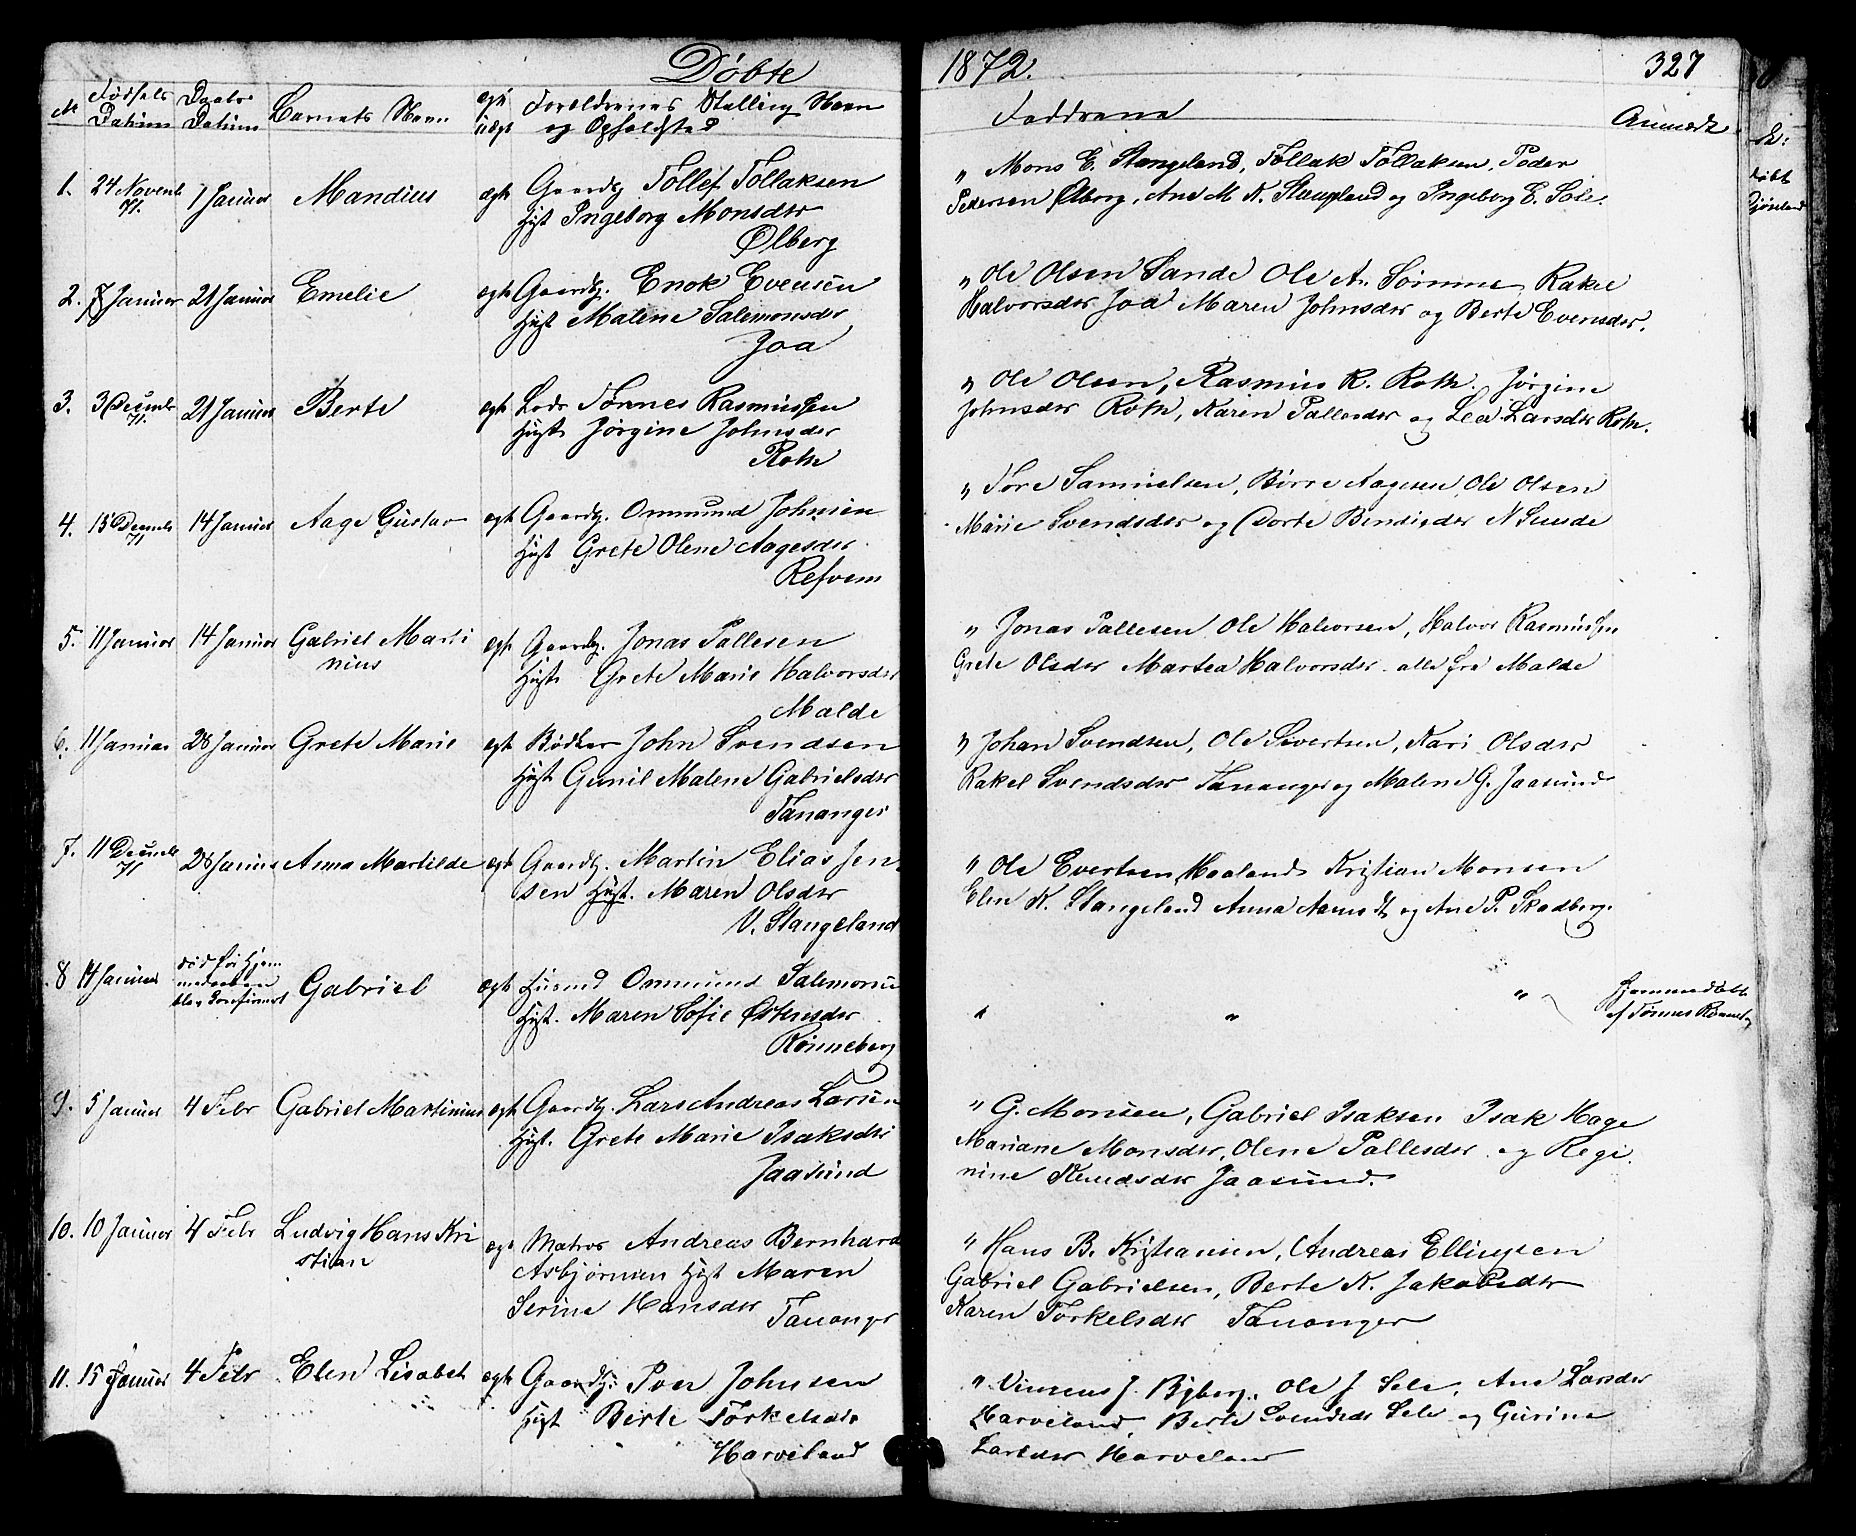 Døbte 1872. 327
No Fødsels Datum Daabs Datum Barnets Navn egt uægt Foreldrenes Stilling Navn og Opholdsted Faddrene Anmerk
1. 24 Novemb 71. 1 Januar Mandius egt Gaardbg Tollef Tollaksen
Hust Ingeborg Monsdtr
Ølberg
" Mons E. Stangeland, Tollak Tollaksen, Peder
Pedersen Ølberg, Ane M. K. Stangeland og Ingeborg E. Sole.
2. 7 Januar 21 Januar Emelie egt Gaardbg. Enok Evensen
Hust Malene Salemonsdr
Joa
" Ole Olsen Sande Ole A. Sømme Rakel
Halvorsdtr Joa Maren Johnsdtr og Berte Evensdtr.
3. 3 Decemb 71. 21 Januar Berte egt Lods Tønnes Rasmussen
Hust Jørgine Johnsdtr
Roth
" Ole Olsen, Rasmus R. Roth. Jørgine
Johnsdtr Roth, Karen Pallesdtr og Lea Larsdtr Roth.
4. 15 Decemb 71 14 Januar Aage Gustav egt Gaardbg. Ommund Johnsen
Hust Grete Olene Aagesdtr
Refvem
" Tore Samuelsen, Børre Aagesen, Ole Olsen
Marie Svendsdtr og Dorte Bendiksdtr N Sunde
5. 11 Januar 14 Januar Gabriel Marti
nius egt Gaardbg. Jonas Pallesen
Hust Grete Marie Halvorsdtr
Malde
" Jonas Pallesen Ole Halvorsen, Halvor Rasmussen
Grete Olsdtr Martea Halvorsdtr alle fra Malde
6. 11 Januar 28 Januar Grete Marie egt Bødker John Svendsen
Hust Gunil Malene Gabrielsdtr
Tananger
" Johan Svendsen, Ole Sivertsen, Kari Olsdtr
Rakel Svendsdtr Tananger og Malene G. Jaasund
7. 11 Decemb 71 28 Januar Anna Martilde egt Gaardbg. Martin Elias Jen
sen Hust. Maren Olsdtr
V. Stangeland
" Ole Evertsen Haaland Kristian Monsen
Elen K. Stangeland Anna Aamodt og Ane P. Skadberg.
8 14 Januar død før Hjem
medaaben
blev Confirmert Gabriel egt Husmd Ommund Salemonsen
Hust. Maren Sofie Østensdtr
Rønneberg
" " " Hjemmedøbt
af Tønnes Rønneberg
9. 5 Januar 4 Febr Gabriel Martinius egt Gaardbg. Lars Andreas Larsen
Hust. Grete Marie Isaksdtr
Jaasund
" G. Monsen, Gabriel Isaksen Isak Hage
Mariane Monsdtr, Olene Pallesdtr og Regi
nine Knudsdtr Jaasund.
10. 10 Januar 4 Febr Ludvig Hans Kri
stian egt Matros Andreas Bernhard
Asbjørnsen Hust Maren
Serine Hansdtr Tananger
" Hans B. Kristiansen, Andreas Ellingsen
Gabriel Gabrielsen, Berte K. Jakobsdtr
Karen Torkelsdtr Tananger
11. 15 Januar 4 Febr Elen Lisabet egt Gaardbg. Iver Johnsen
Hust Berte Torkelsdtr
Harveland
" Vincens J. Byberg, Ole J. Sele, Ane Larsdtr
Harveland, Berte Svendsdtr Sele og Gurine
Larsdtr Harveland